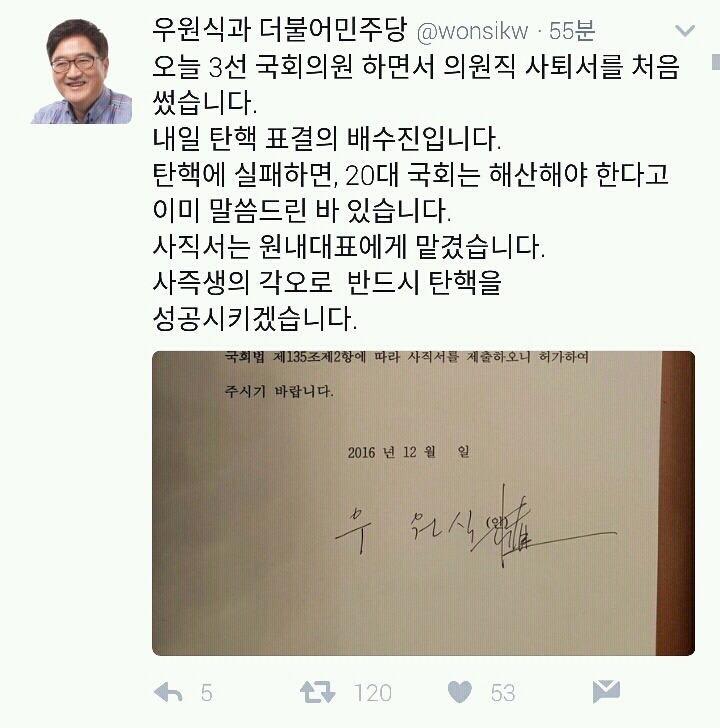 우원식과 더불어민주당 @wonsikw · 55분
오늘 3선 국회의원 하면서 의원직 사퇴서를 처음
썼습니다.
내일 탄핵 표결의 배수진입니다.
탄핵에 실패하면, 20대 국회는 해산해야 한다고
이미 말씀드린 바 있습니다.
사직서는 원내대표에게 맡겼습니다.
사즉생의 각오로 반드시 탄핵을
성공시키겠습니다.
국회법 제135조제2항에 따라 사직서를 제출하오니 허가하여
주시기 바랍니다.
2016 년 12 월 일
우 원 식 (인)
5 120 53